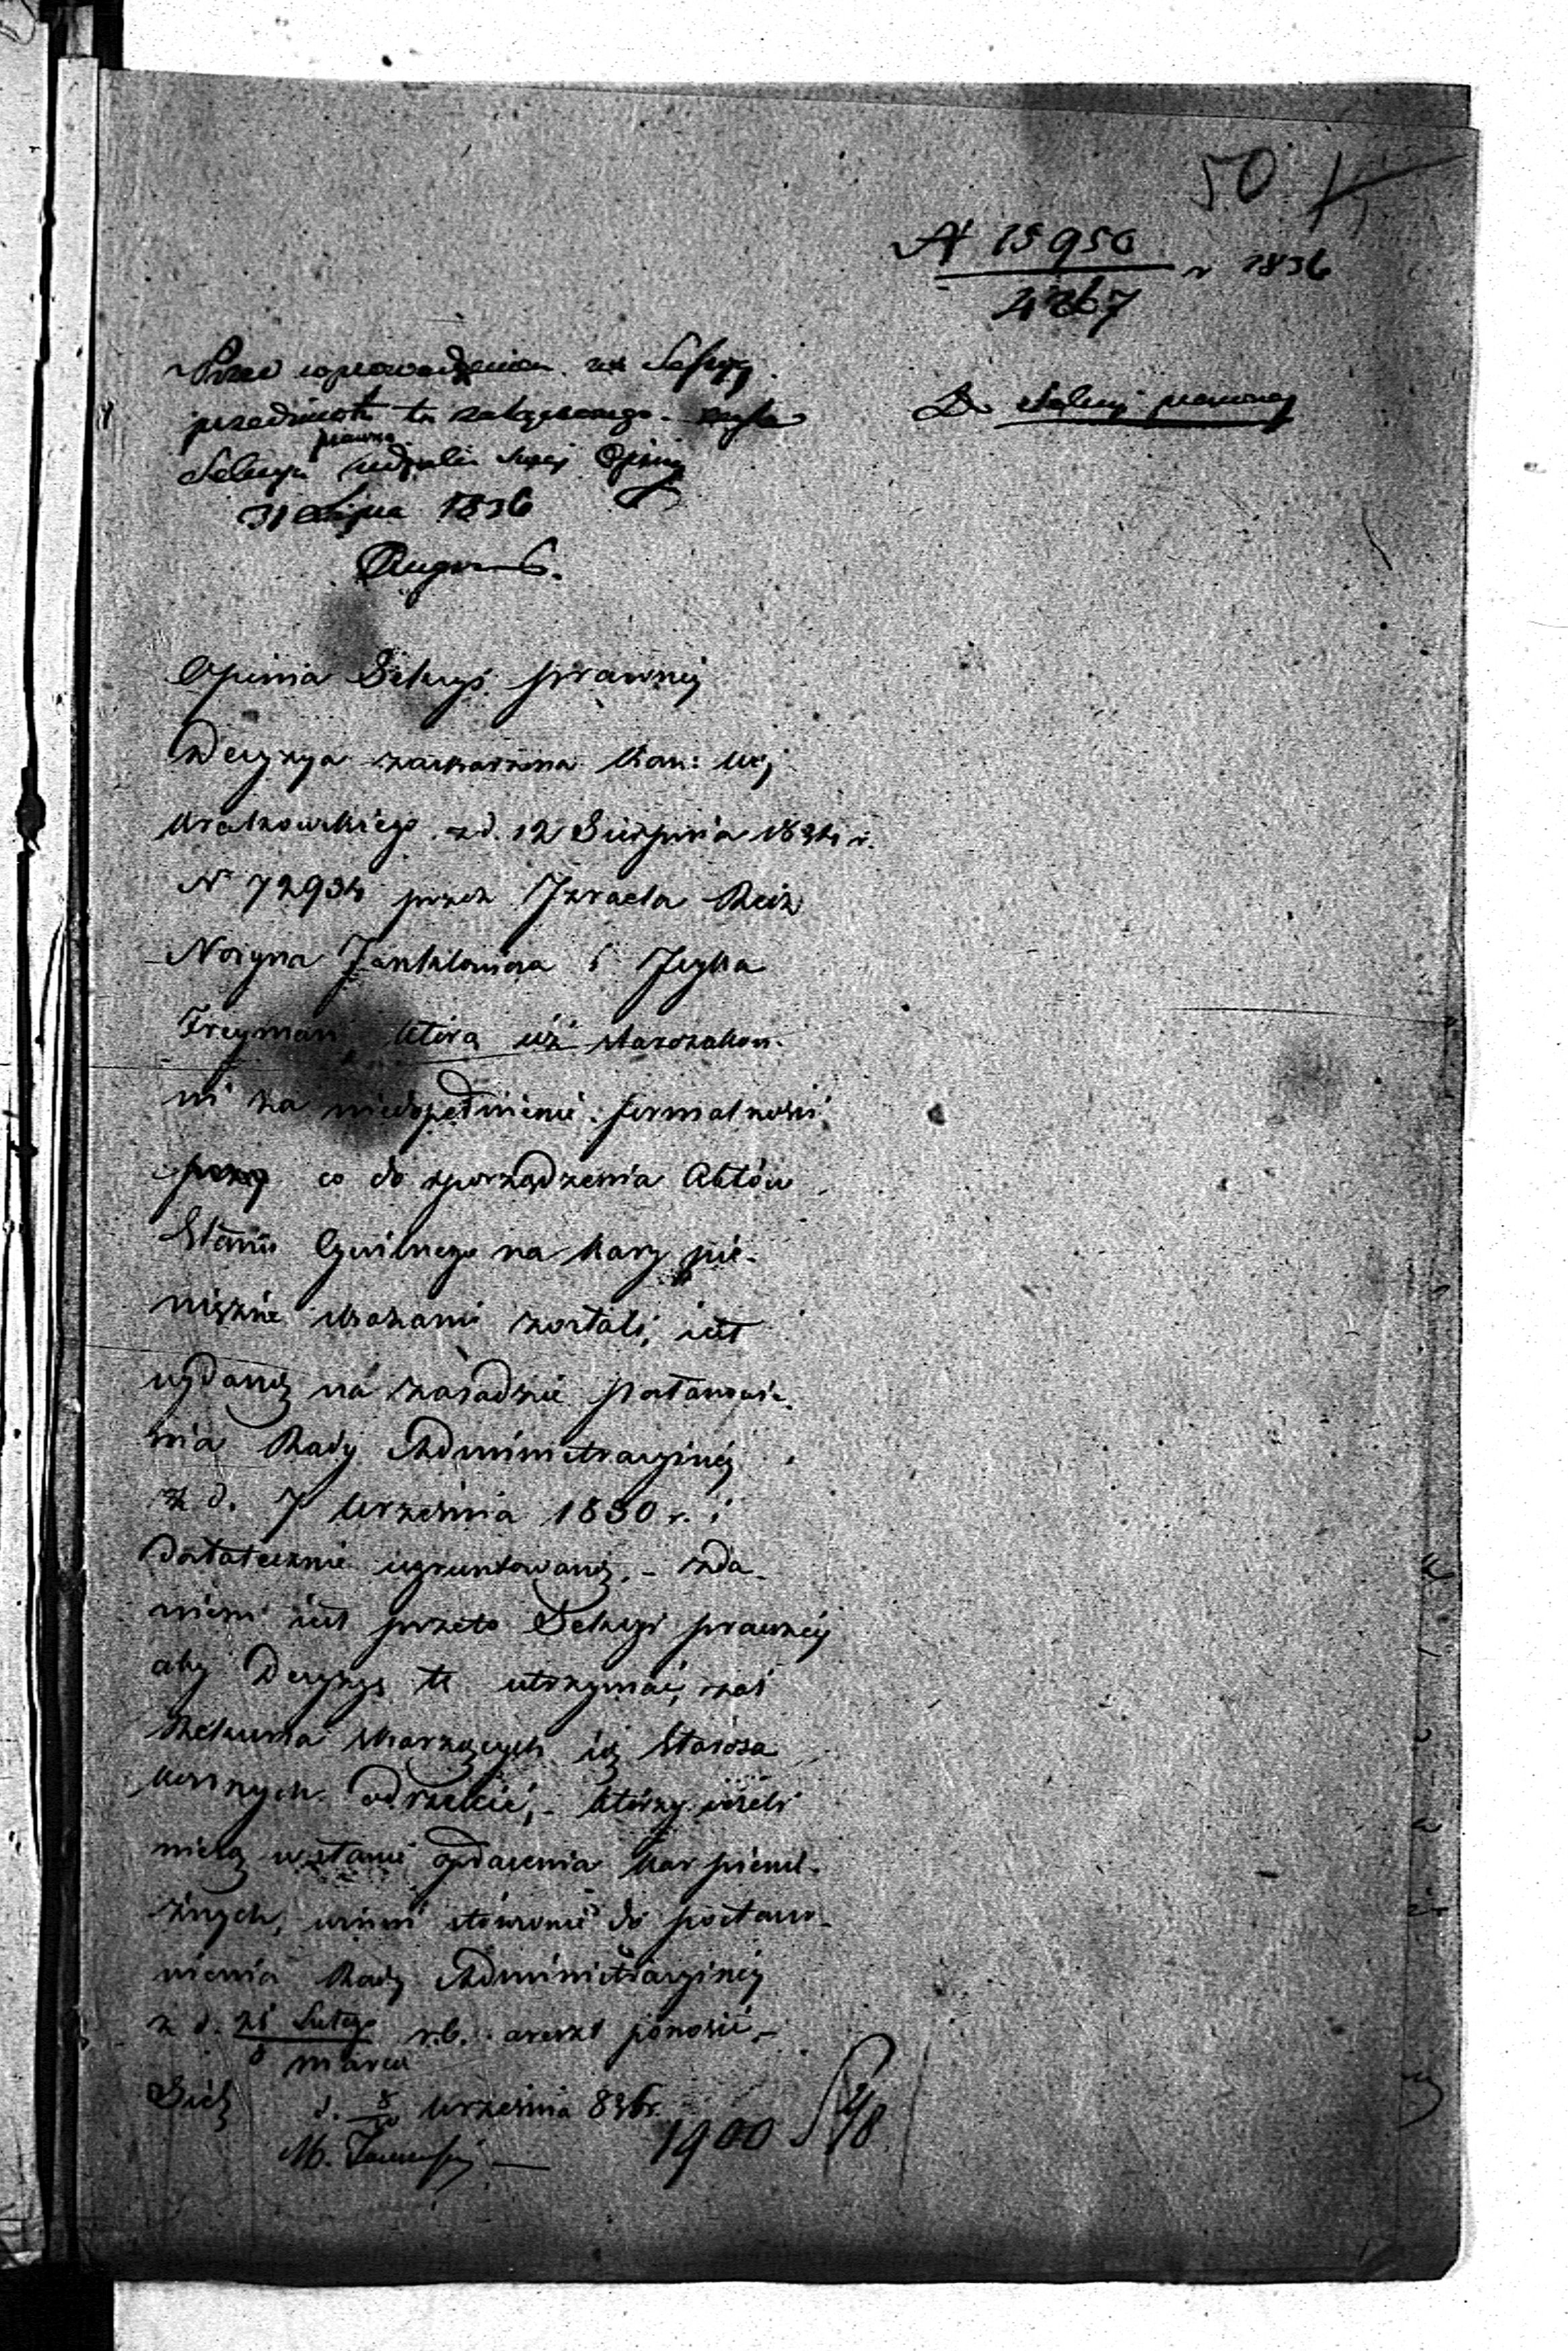 50
N 15950 r 1836
4267
Przed wprowadzeniem na Sessyę
przedmiotu tu załączonego
Do Sekcyi prawney
prawna
Sekcya udzieli swej Opinij
31 Lipca 1836
Opinia Sekcyi prawnéj
Decyzya zaskarżona Kom: Wój
Krakowskiego z d. 12 Sierpnia 1834 r.
N 72934 przez Izraela Reiz
Noiyna Jankklowicza i Jcyka
Freyman, którą ciż starozakon-
ni za niedopełnienie formalności
co do sporządzenia Aktów
Stanu Cywilnego na kary pie-
niężne wskazani zostali, iest
wydaną na zasadzie postanowie-
nia Rady Administracyinéj
z d. 7 Września 1830 r. i
dostatecznie ugruntowaną. - Zda-
niem iest przeto Sekcyi prawnéj
aby Decyzyę tę utrzymać, zaś
Rekursa skarżących ią Staroza
konnych odrzucić, - którzy ieżeli
niesą w stanie opłacenia kar pienię-
żnych, winni stósownie do postano-
wienia Rady Administracyinéj
z d. 25 Lutego r.b. areszt ponosić. -
8 Marca
d. 8/20 Września 836 r.
1900